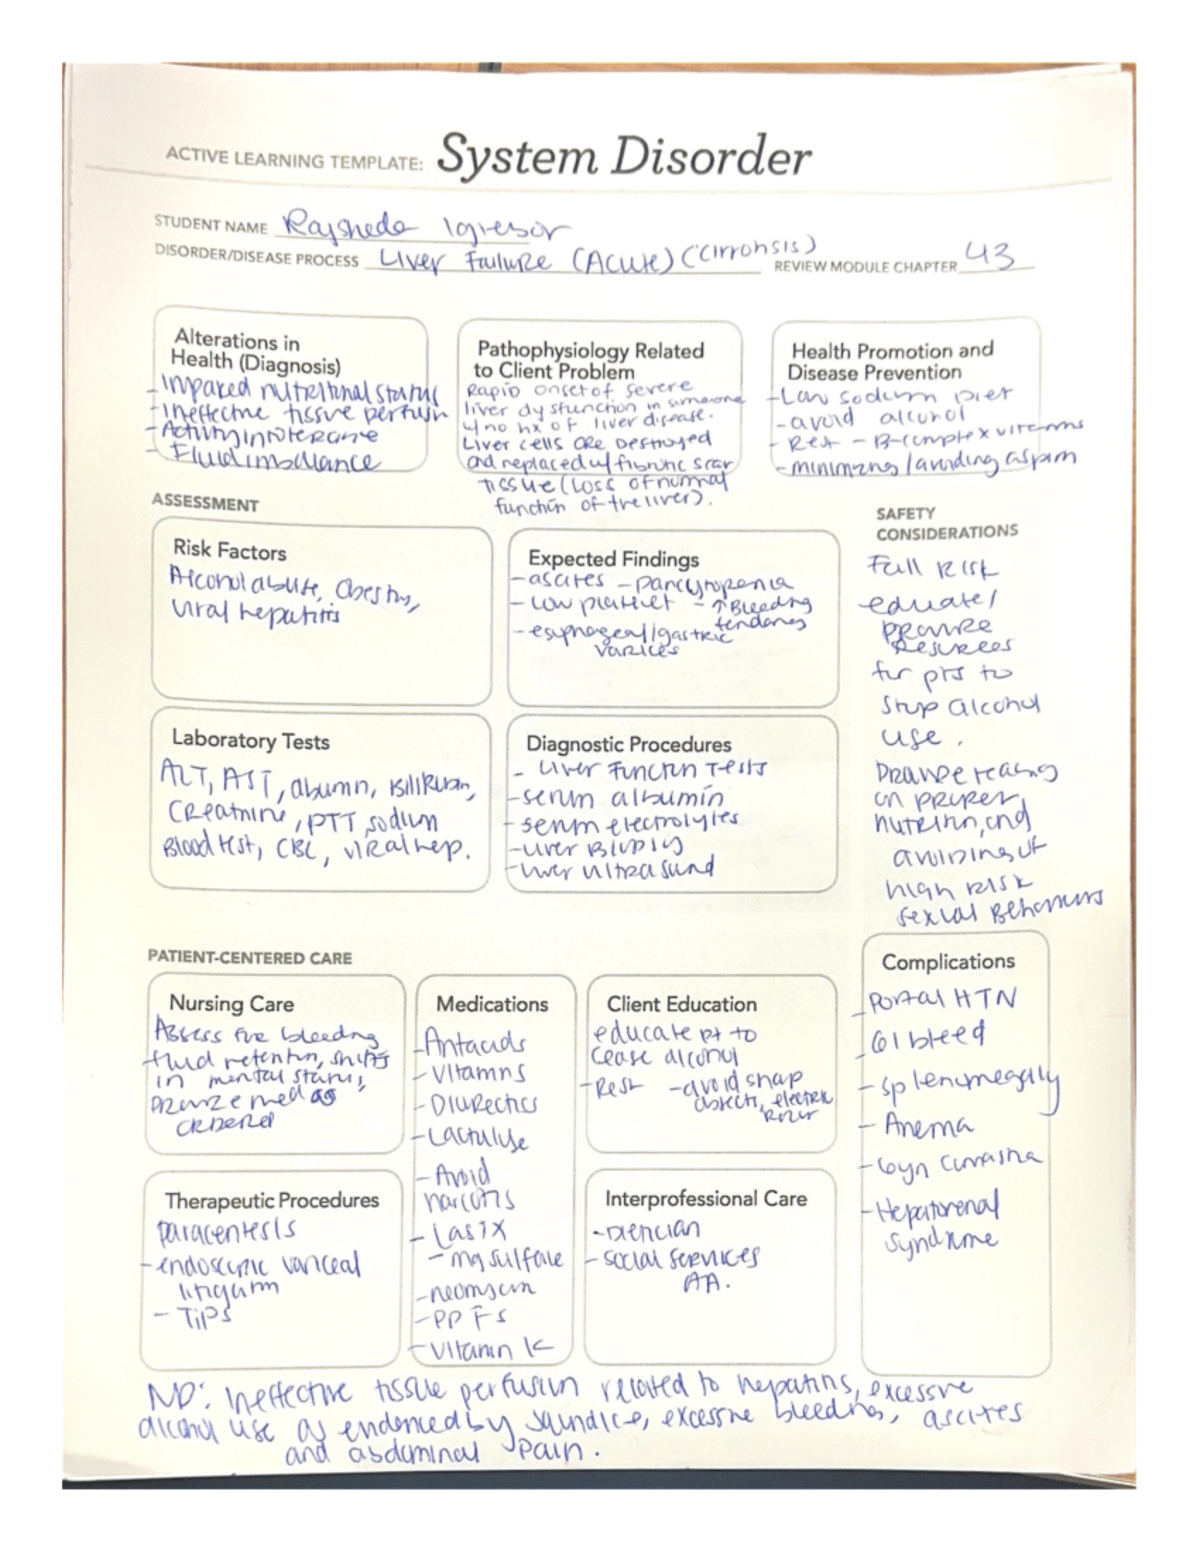 ACTIVE LEARNING TEMPLATE: System Disorder
STUDENT NAME Rajsheda
DISORDER/DISEASE PROCESS Liver Failure (Acute) (Cirrohsis)
REVIEW MODULE CHAPTER 43
Alterations in
Health (Diagnosis)
- Impaired nutritional status
- Ineffective tissue perfusion
- Activity intolerance
- Fluid imbalance
Pathophysiology Related
to Client Problem
Rapid onset of severe
liver dysfunction in someone
w/ no hx of liver disease.
Liver cells are Destroyed
and replaced w/ fibrotic scar
tissue (loss of normal
function of the liver).
Health Promotion and
Disease Prevention
- Low sodium Diet
- avoid alcohol
- Rest - B-complex vitamins
- minimizing/avoiding aspirin
ASSESSMENT
Risk Factors
Alcohol abuse, Obesity,
viral hepatitis
Expected Findings
- ascites - pancytopenia
- Low platelet - ↑ Bleeding
tendancy
- esophageal/gastric
varices
SAFETY
CONSIDERATIONS
Fall Risk
educate/
provide
resources
for pts to
stop alcohol
use.
Provide teaching
on proper
nutrition, and
avoiding of
high risk
sexual Behaviors
Laboratory Tests
ALT, AST, albumin, Billirubin,
Creatinine, PTT, sodium
Blood test, CBC, viral hep.
Diagnostic Procedures
- Liver Function Tests
- serum albumin
- serum electrolytes
- Liver Biopsy
- liver ultrasound
PATIENT-CENTERED CARE
Nursing Care
Assess for bleeding
fluid retention, shifts
in mental status,
provide med as
ordered
Medications
- Antacids
- Vitamins
- Diurectics
- Lactulose
- Avoid
narcotis
- Lasix
- mg sulfate
- neomycin
- PPI's
- Vitamin K
Client Education
educate pt to
cease alcohol
- Rest - avoid sharp
objects, electric
razor
Complications
- Portal HTN
- GI bleed
- Splenomegaly
- Anemia
- Gyn
- Hepatorenal
syndrome
Therapeutic Procedures
paracentesis
- endoscopic variceal
ligation
- TiPS
Interprofessional Care
- Dietician
- Social Services
AA.
ND: Ineffective tissue perfusion related to hepatitis, excessive
alcohol use as evidenced by jaundice, excessive bleeding, ascites
and abdominal pain.